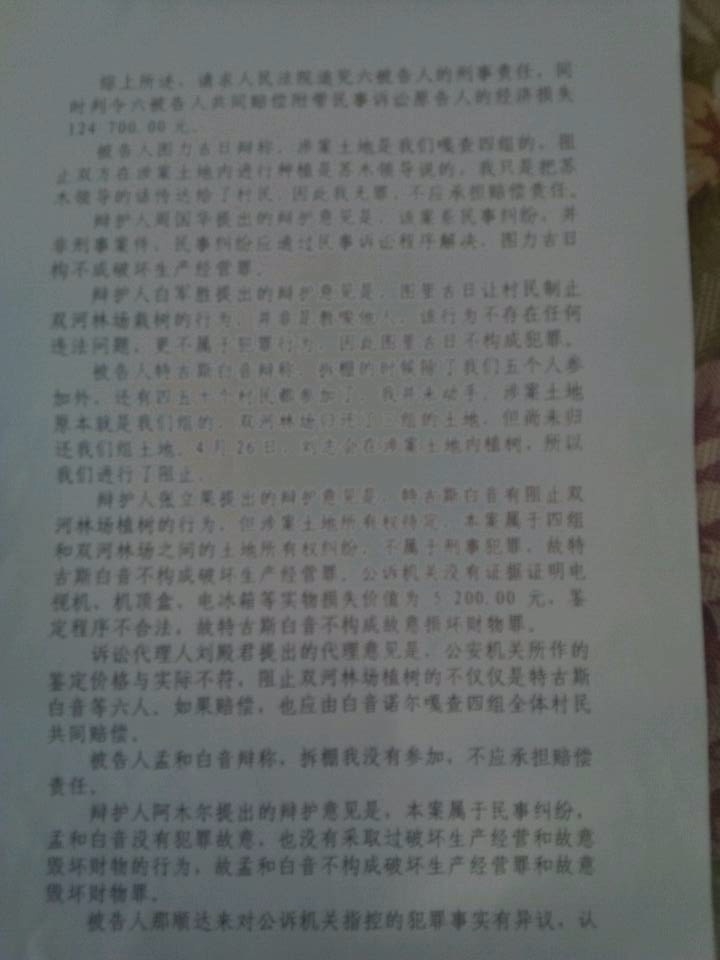 综上所述，请求人民法院追究六被告人的刑事责任，同
时判令六被告人共同赔偿附带民事诉讼原告人的经济损失
124 700.00元。
被告人图力古日辩称，涉案土地是我们嘎查四组的，阻
止双方在涉案土地内进行种植是苏木领导说的，我只是把苏
木领导的话传达给了村民，因此我无罪，不应承担赔偿责任。
辩护人周国华提出的辩护意见是，该案系民事纠纷，并
非刑事案件，民事纠纷应通过民事诉讼程序解决，图力古日
构不成破坏生产经营罪。
辩护人白军胜提出的辩护意见是，图里古日让村民制止
双河林场栽树的行为，并非是教唆他人，该行为不存在任何
违法问题，更不属于犯罪行为，因此图里古日不构成犯罪。
被告人特古斯白音辩称，拆棚的时候除了我们五个人参
加外，还有四五十个村民都参加了，我并未动手，涉案土地
原本就是我们组的，双河林场归还了三组的土地，但尚未归
还我们组土地，4月26日，刘志会在涉案土地内植树，所以
我们进行了阻止。
辩护人张立果提出的辩护意见是，特古斯白音有阻止双
河林场植树的行为，但涉案土地所有权待定，本案属于四组
和双河林场之间的土地所有权纠纷，不属于刑事犯罪，故特
古斯白音不构成破坏生产经营罪，公诉机关没有证据证明电
视机、机顶盒、电冰箱等实物损失价值为 5 200.00 元，鉴
定程序不合法，故特古斯白音不构成故意损坏财物罪。
诉讼代理人刘殿君提出的代理意见是，公安机关所作的
鉴定价格与实际不符，阻止双河林场植树的不仅仅是特古斯
白音等六人，如果赔偿，也应由白音诺尔嘎查四组全体村民
共同赔偿。
被告人孟和白音辩称，拆棚我没有参加，不应承担赔偿
责任。
辩护人阿木尔提出的辩护意见是，本案属于民事纠纷，
孟和白音没有犯罪故意，也没有采取过破坏生产经营和故意
毁坏财物的行为，故孟和白音不构成破坏生产经营罪和故意
毁坏财物罪。
被告人那顺达来对公诉机关指控的犯罪事实有异议，认